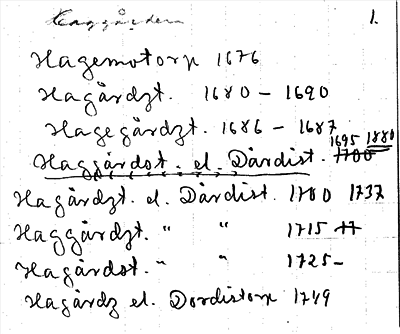 Haggården 1.
Hagemotorp 1676
Hagårdzt. 1680 - 1690
Hagegårdzt. 1686 - 1687
1695 1880
Haggårdst. el. Dårdist. 1700
Hagårdzt. el. Dårdist. 1700 1737
Haggårdzt. " " 1715 17
Hagårdst. " " 1725-
Hagårdz el. Dordistorp 1749